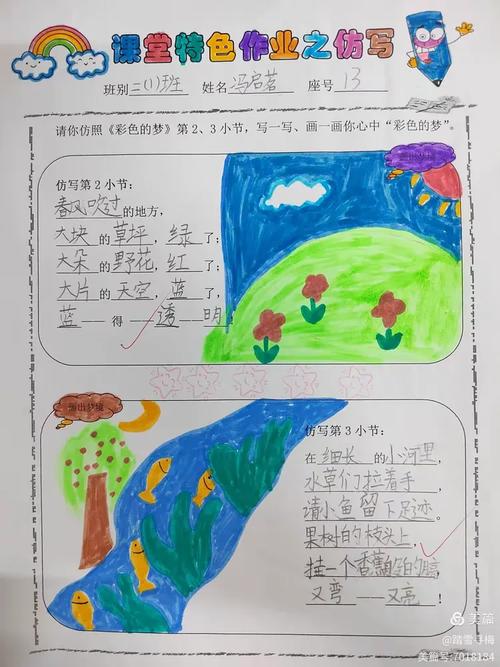 课堂特色作业之仿写
班别 二(1)班 姓名 冯启茗 座号 13
请你仿照《彩色的梦》第2、3小节，写一写、画一画你心中“彩色的梦”。
仿写第2小节：
春风吹过的地方，
大块的草坪，绿了；
大朵的野花，红了；
大片的天空，蓝了，
蓝——得——透——明！
画出梦境
仿写第3小节：
在细长的小河里
水草们拉着手
请小鱼留下足迹。
果树的枝头上，
挂一个香蕉般的
又弯——又亮！
美篇
@踏雪寻梅
美篇号:7018184